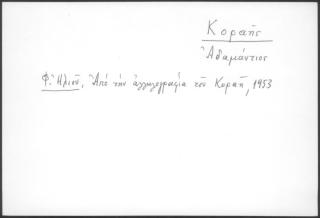 Κοραῆς
Ἀδαμάντιος
Φ. Ἠλιοῦ, Ἀπό τήν ἀλληλογραφία τοῦ Κοραῆ, 1953